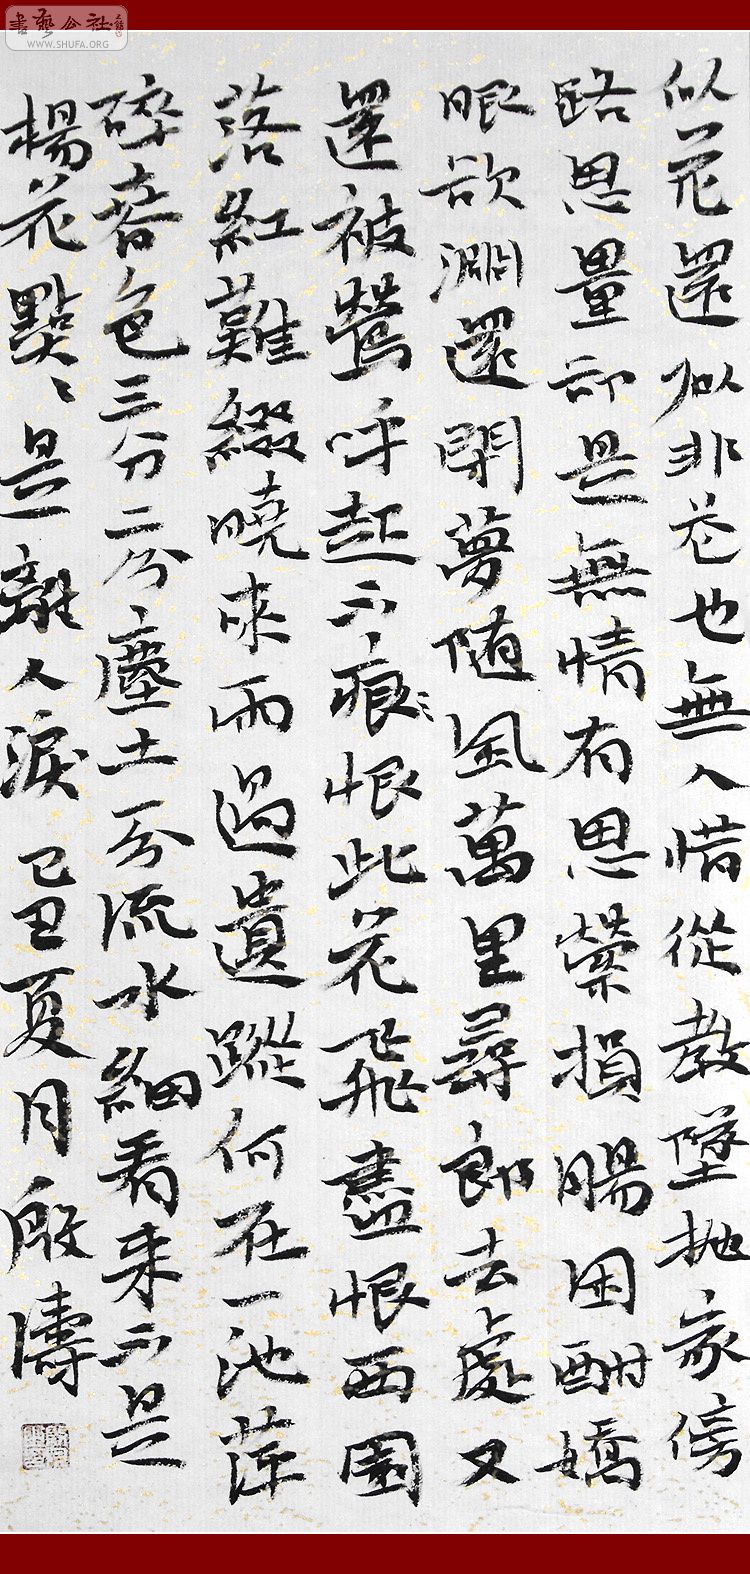 書藝公社
WWW.SHUFA.ORG
似花還似非花也無人惜從教墜抛家傍
路思量却是無情有思縈損腸困酣嬌
眼欲開還閉夢隨風萬里尋郎去處又
還被鶯呼起不痕恨此花飛盡恨西園
落紅難綴曉來雨過遺蹤何在一池萍
碎春色三分二分塵土一分流水細看來不是
楊花點〻是離人淚 己丑夏月 殷濤